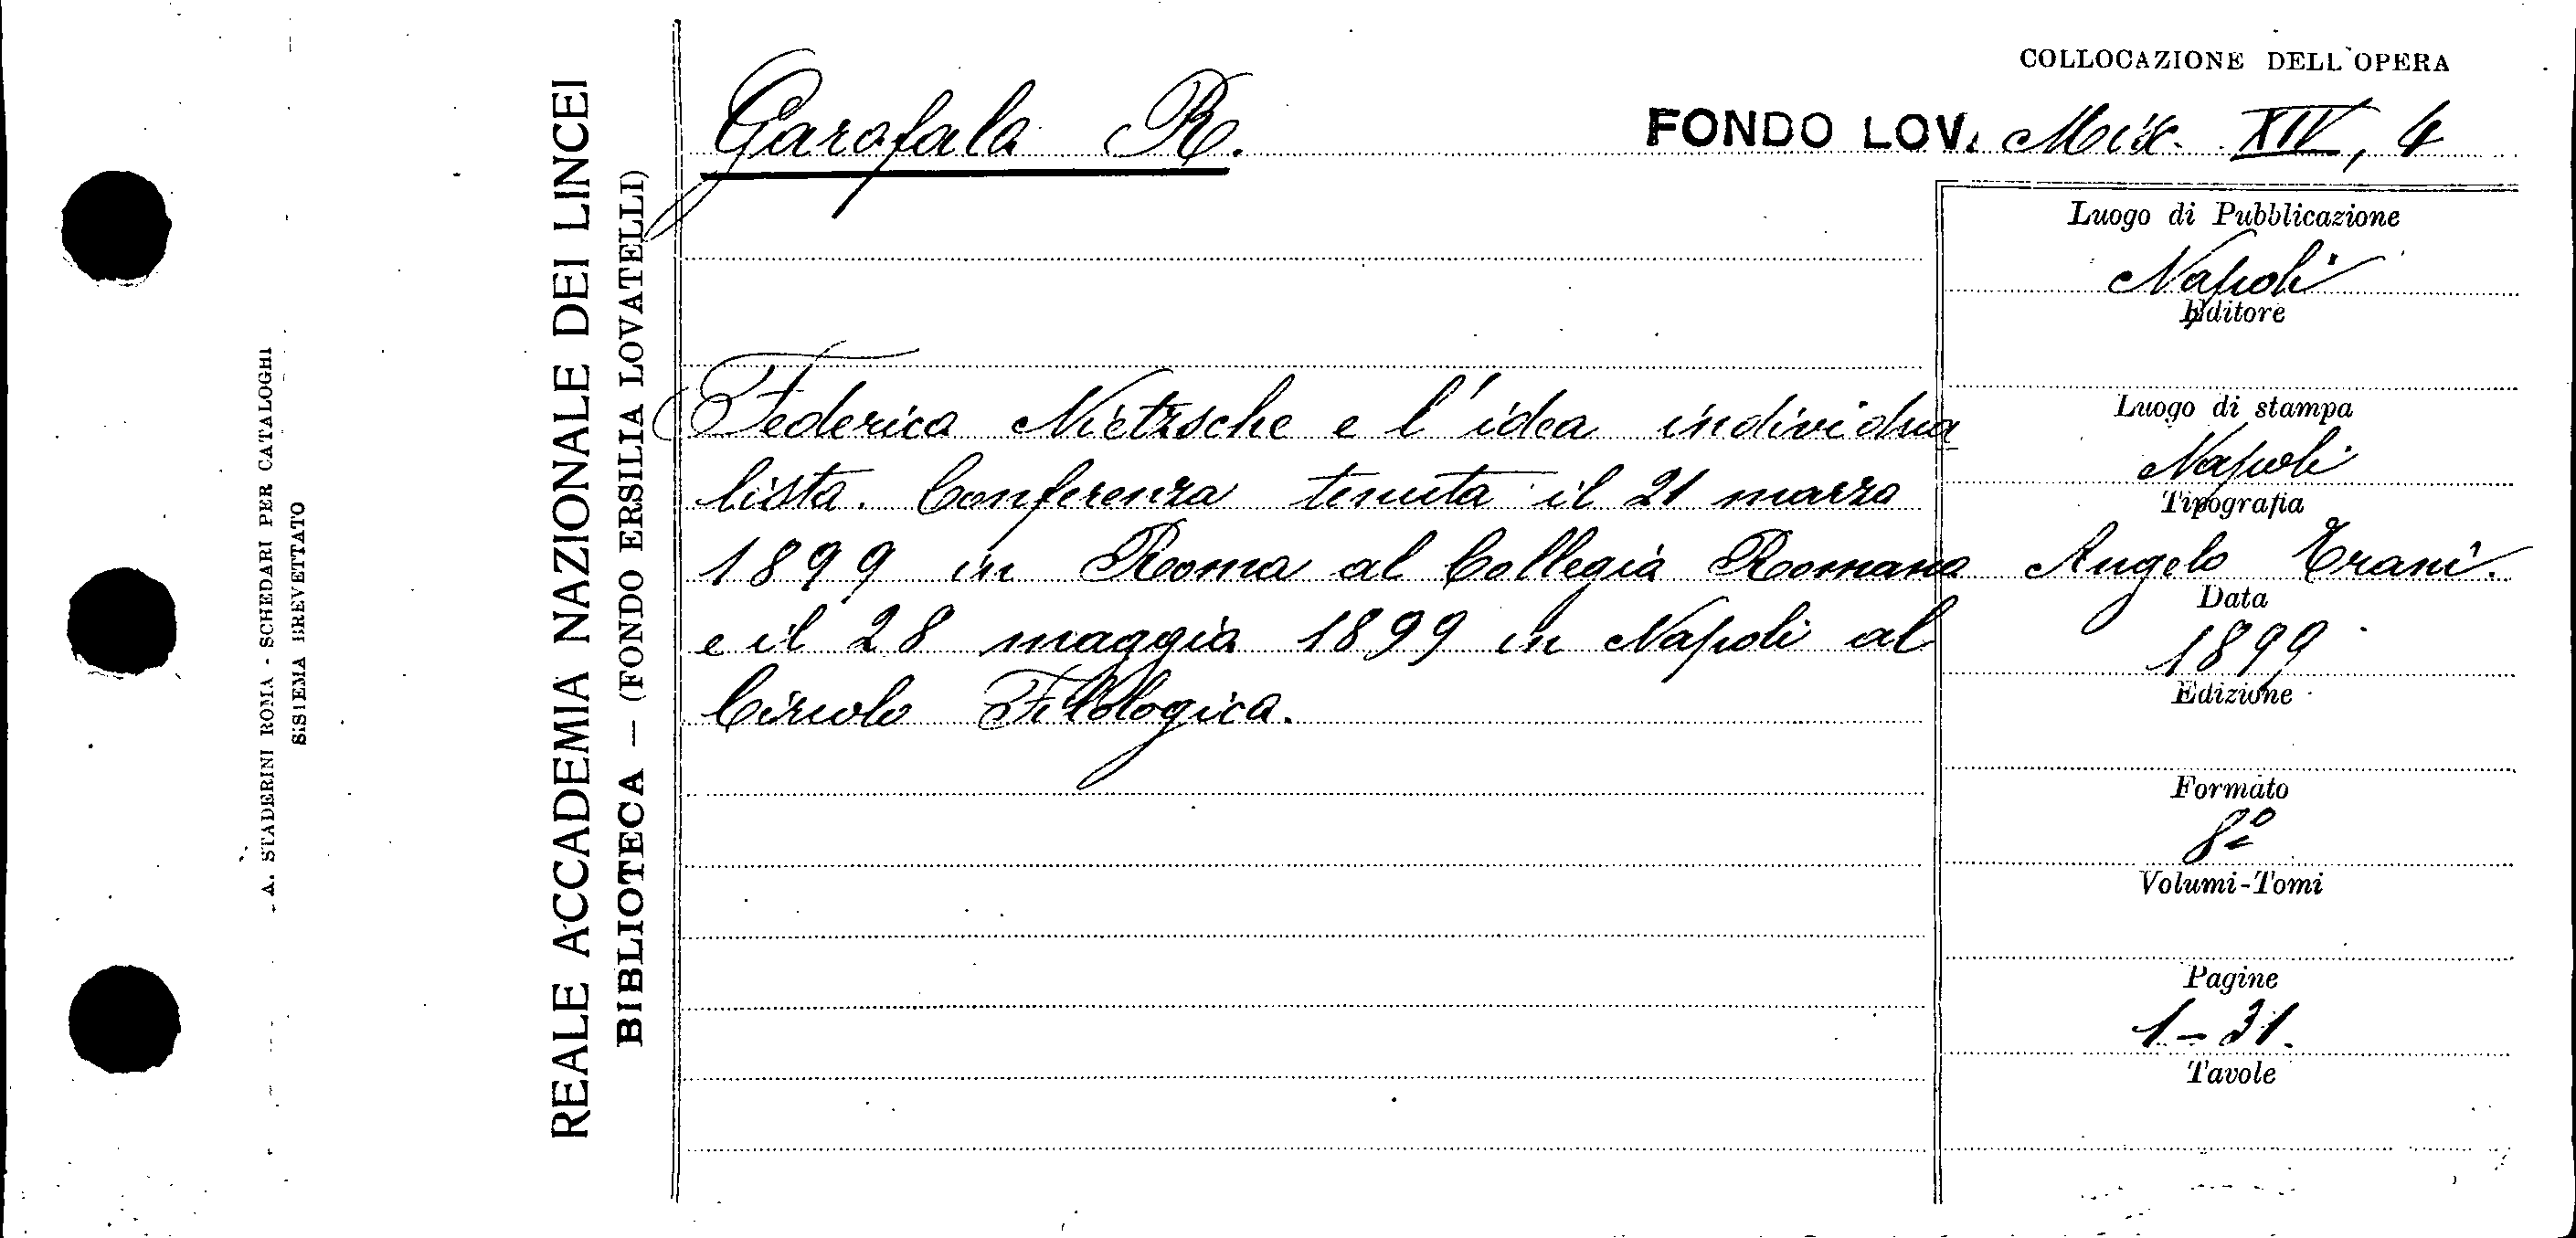 A. STADERINI ROMA - SCHEDARI PER CATALOGHI
SISTEMA BREVETTATO
REALE ACCADEMIA NAZIONALE DEI LINCEI
BIBLIOTECA — (FONDO ERSILIA LOVATELLI)
COLLOCAZIONE DELL'OPERA
Garofalo R.
FONDO LOV. Misc. XIV, 4
Federico Nietzsche e l'idea individua
lista. Conferenza tenuta il 21 marzo
1899 in Roma al Collegio Romano
e il 28 maggio 1899 in Napoli al
Circolo Filologico.
Luogo di Pubblicazione
Napoli
Editore
Luogo di stampa
Napoli
Tipografia
Angelo Trani.
Data
1899
Edizione
Formato
8º
Volumi-Tomi
Pagine
1-31.
Tavole